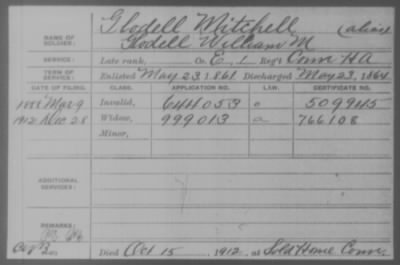 Glodell Mitchell
NAME OF SOLDIER: Glodell William M (alias)
SERVICE: Late rank, Co. E, 1 Reg't Conn H A
TERM OF SERVICE: Enlisted May 23 1861 Discharged May 23, 1864
DATE OF FILING. CLASS. APPLICATION NO. LAW. CERTIFICATE NO.
1888 Mar 9 Invalid, 644053 509945
1912 Dec 28 Widow, 999013 a 766108
Minor,
ADDITIONAL SERVICES:
REMARKS:
Died Oct 15 1912, at Sold Home Conn.